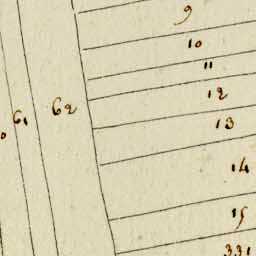 9
10
11
62
12
61
13
14
15
331